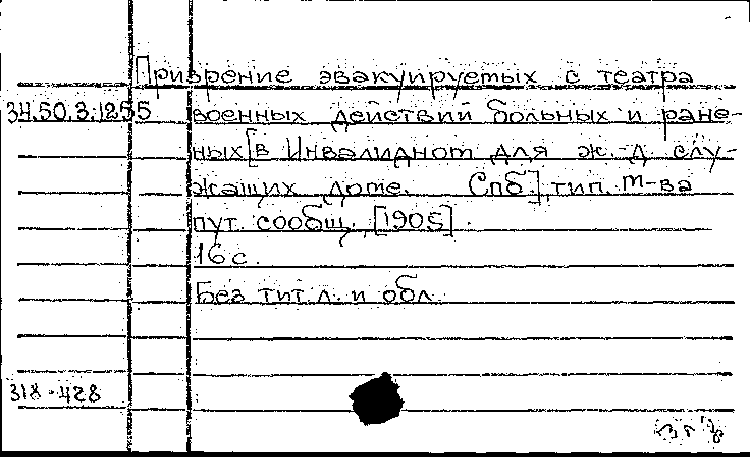 Призрение эвакуируемых с театра
34.50.3:1255 военных действий больных и ране-
ных [в Инвалидном для ж.-д. слу-
жащих доме. Спб.], тип. м-ва
пут. сообщ., [1905].
16 с.
Без тит. л. и обл.
318-428